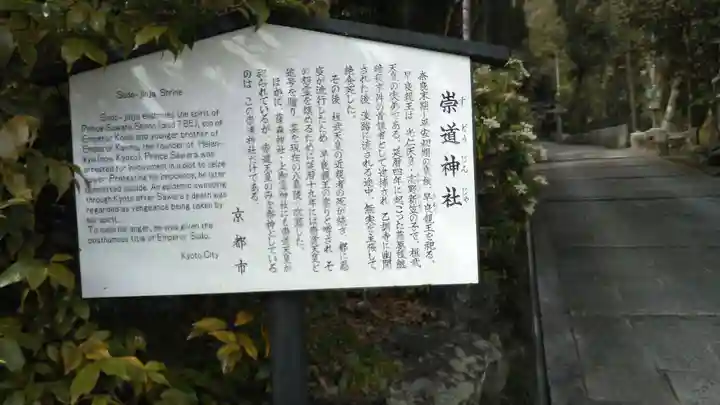 崇道神社
すどうじんじゃ
奈良末期~平安初期の皇族 早良親王を祀る。
早良親王は 光仁天皇・高野新笠の子で、桓武
天皇の弟である。延暦四年に起こった藤原種継
暗殺事件の首謀者として逮捕され 乙訓寺に幽閉
された後 淡路に流される途中、無実を主張して
絶食死した。
その後、桓武天皇の近親者の死が続き、都に悪
疫が流行したため 早良親王の祟りと噂され、そ
の怨霊を鎮めるために延暦十九年には崇道天皇と
追号を贈り 墓を現在の八島陵へ改葬した。
ほかに 藤森神社・上御霊神社にも崇道天皇が
祀られているが、崇道天皇のみを祭神としている
のは この崇道神社だけである。
京都市
Sudo-Jinja Shrine
Sudo-Jinja enshrines the spirit of
Prince Sawara Shinno (died 785), son of
Emperor Konin and younger brother of
Emperor Kanmu, the founder of Heian-
kyo (now Kyoto). Prince Sawara was
arrested for involvement in a plot to seize
power. Protesting his innocency, he later
committed suicide. An epidemic sweeping
through Kyoto after Sawara's death was
regarded as vengeance being taken by
his spirit.
To ease his anger, he was given the
posthumous title of Emperor Sudo.
Kyoto City